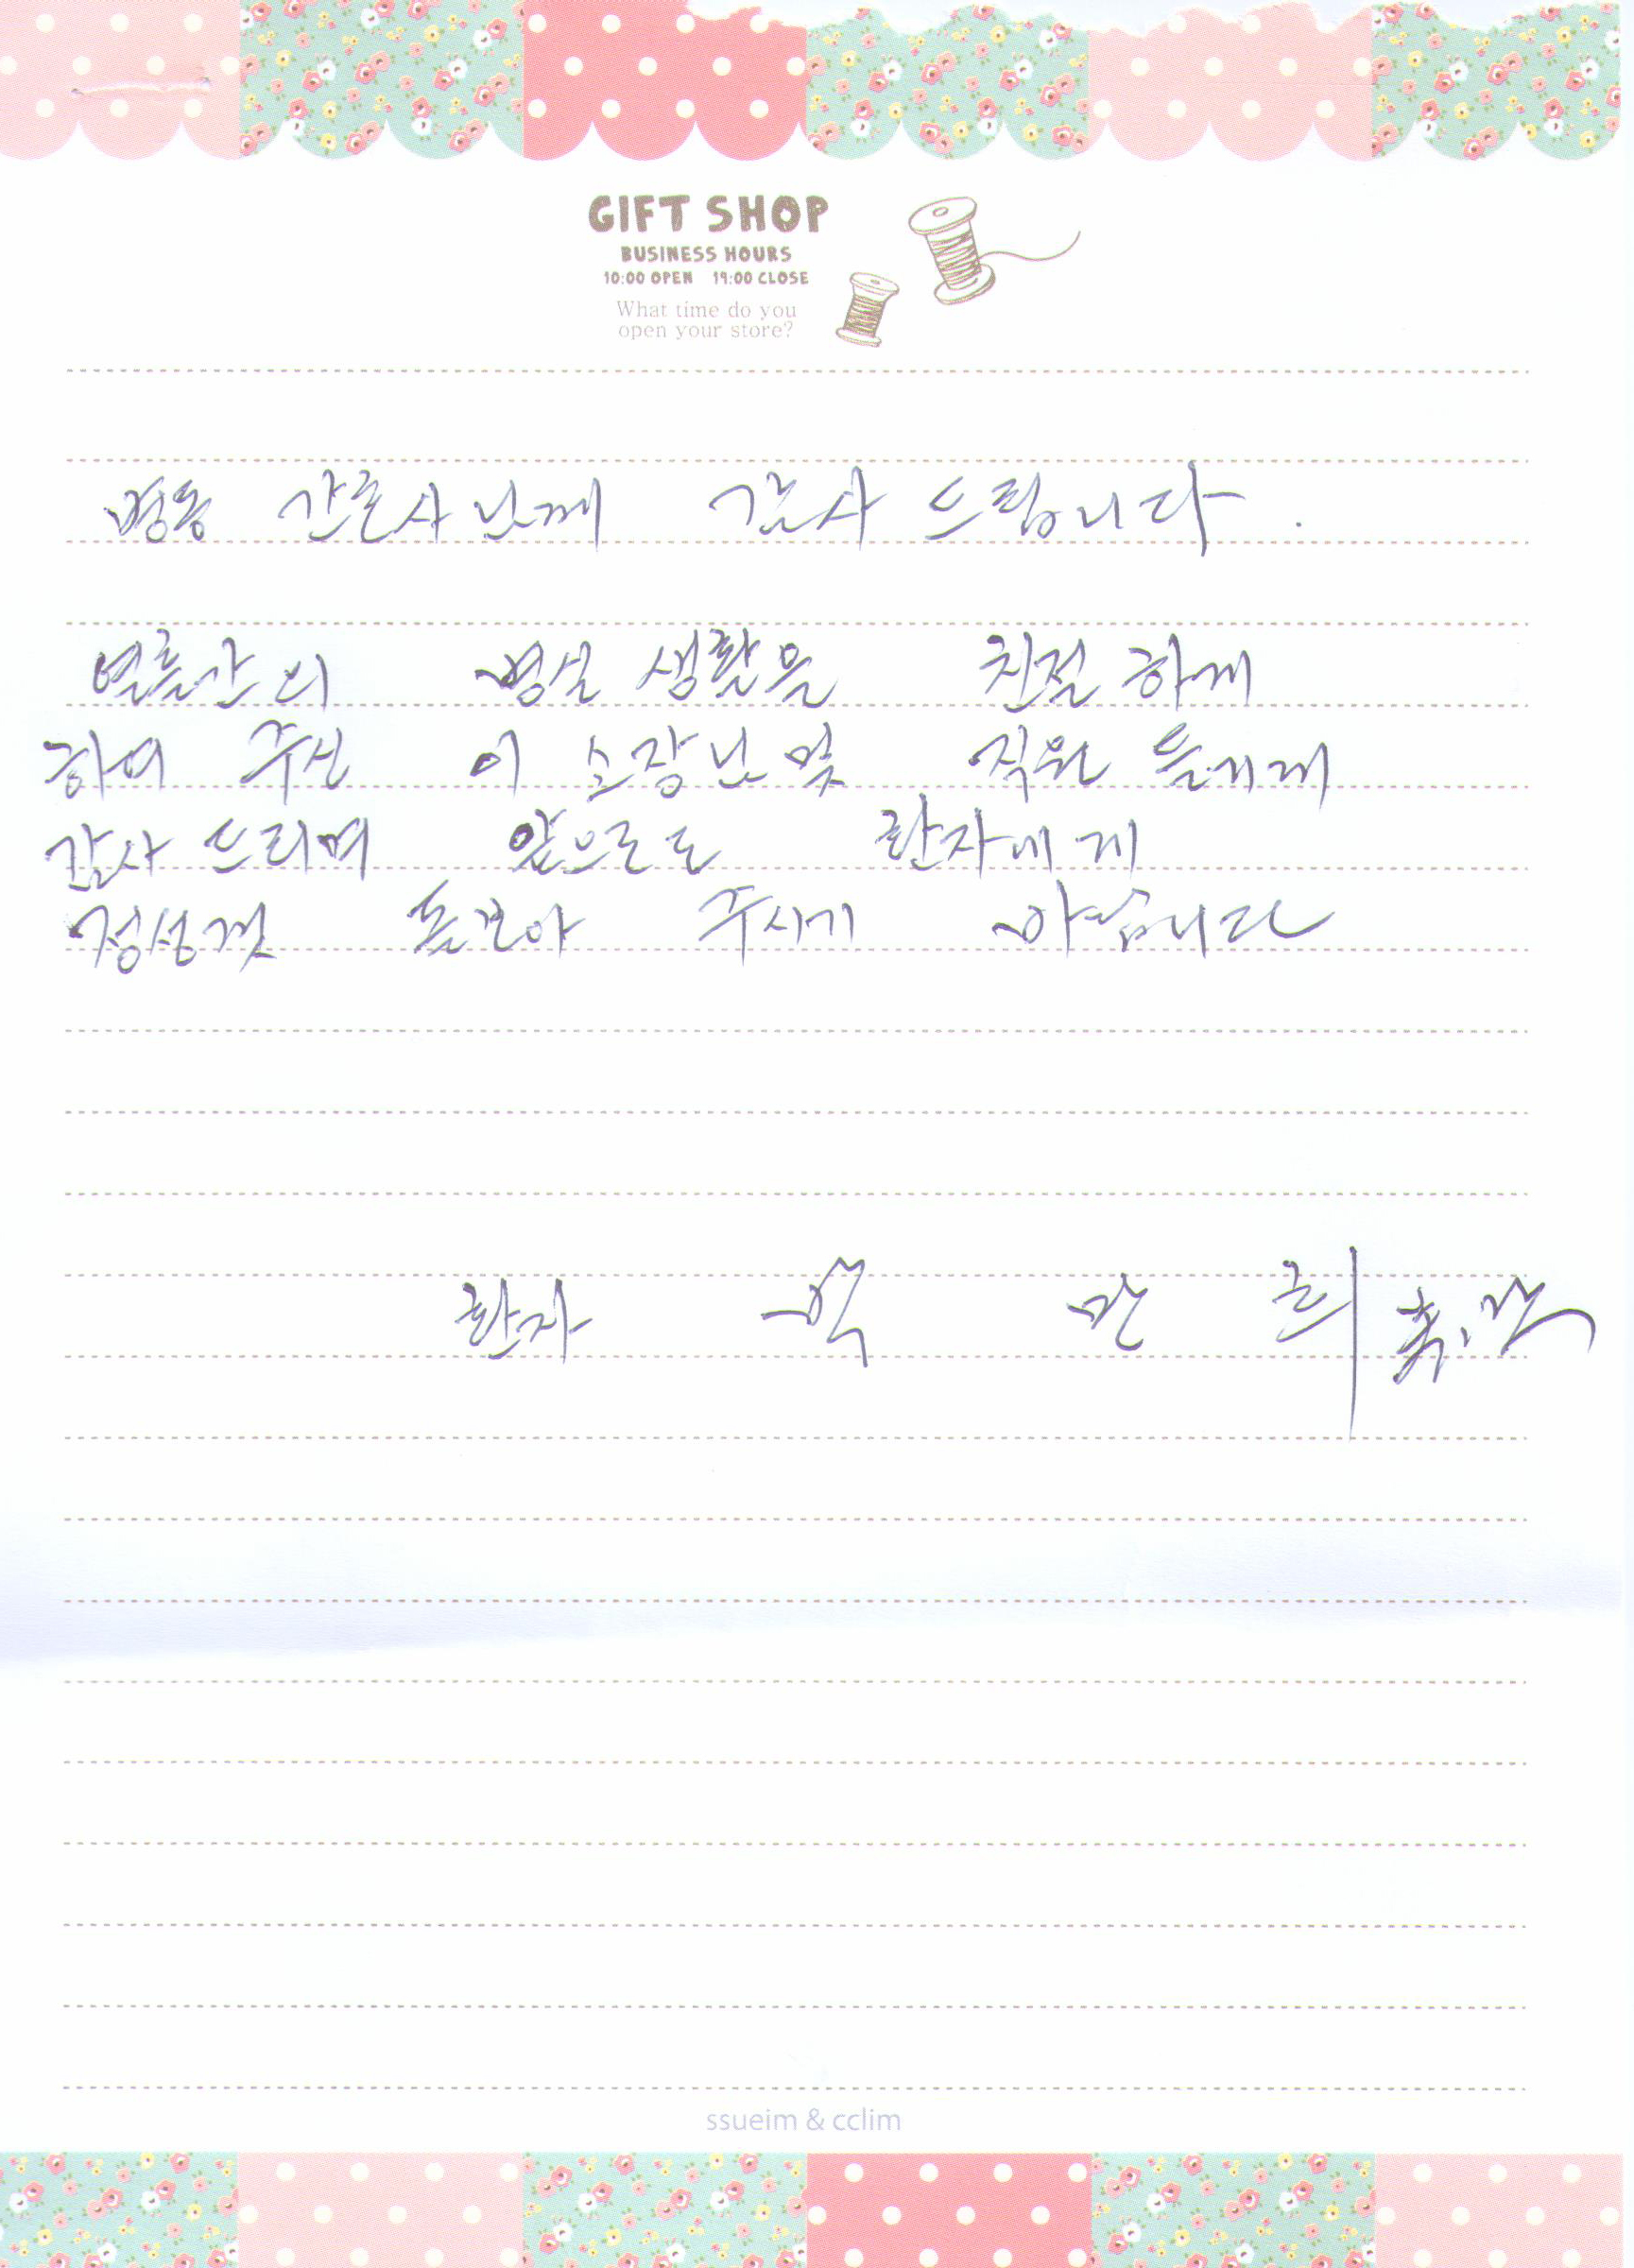 GIFT SHOP
BUSINESS HOURS
10:00 OPEN 19:00 CLOSE
What time do you
open your store?
병동 간호사 님께 감사 드립니다.
열흘간의 병실 생활을 친절 하게
하여 주신 이 소장님 및 직원 들에게
감사 드리며 앞으로도 환자에게
정성껏 돌보아 주시기 바랍니다
환자 박 만 희
ssueim & cclim